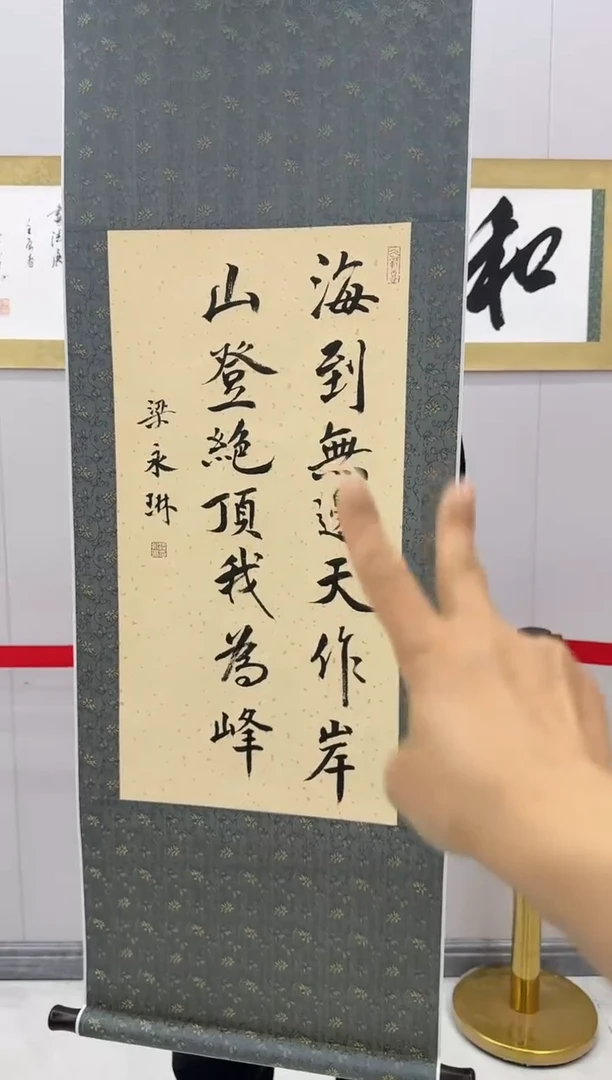 海到無邊天作岸
山登絕頂我為峰
梁永琳
和